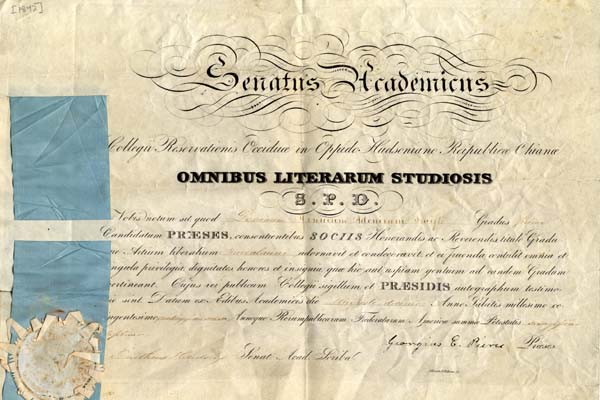 [1842]
Senatus Academicus
Collegii Reservationis Occiduæ in Oppido Hudsoniano Reipublicæ Ohianæ
OMNIBUS LITERARUM STUDIOSIS
S. P. D.
Nobis notum sit quod Gradus
Candidatum PRÆSES, consentientibus SOCIIS Honorandis ac Reverendis titulo Gradu
Artium liberalium adornavit et condecoravit, et ei fruenda contulit omnia et
privilegia, dignitates honores et insignia quæ hic aut uspiam gentium ad eundem Gradum
pertinent. Cujus rei publicum Collegii sigillum et PRÆSIDIS autographum testimo
sint. Datum ex Ædibus Academicis die Anno Salutis millesimo oc
Annoque Rerumpublicarum Fœderatarum Americæ summæ Potestatis
Senat. Acad. Scriba Georgius E. Pierce Præses